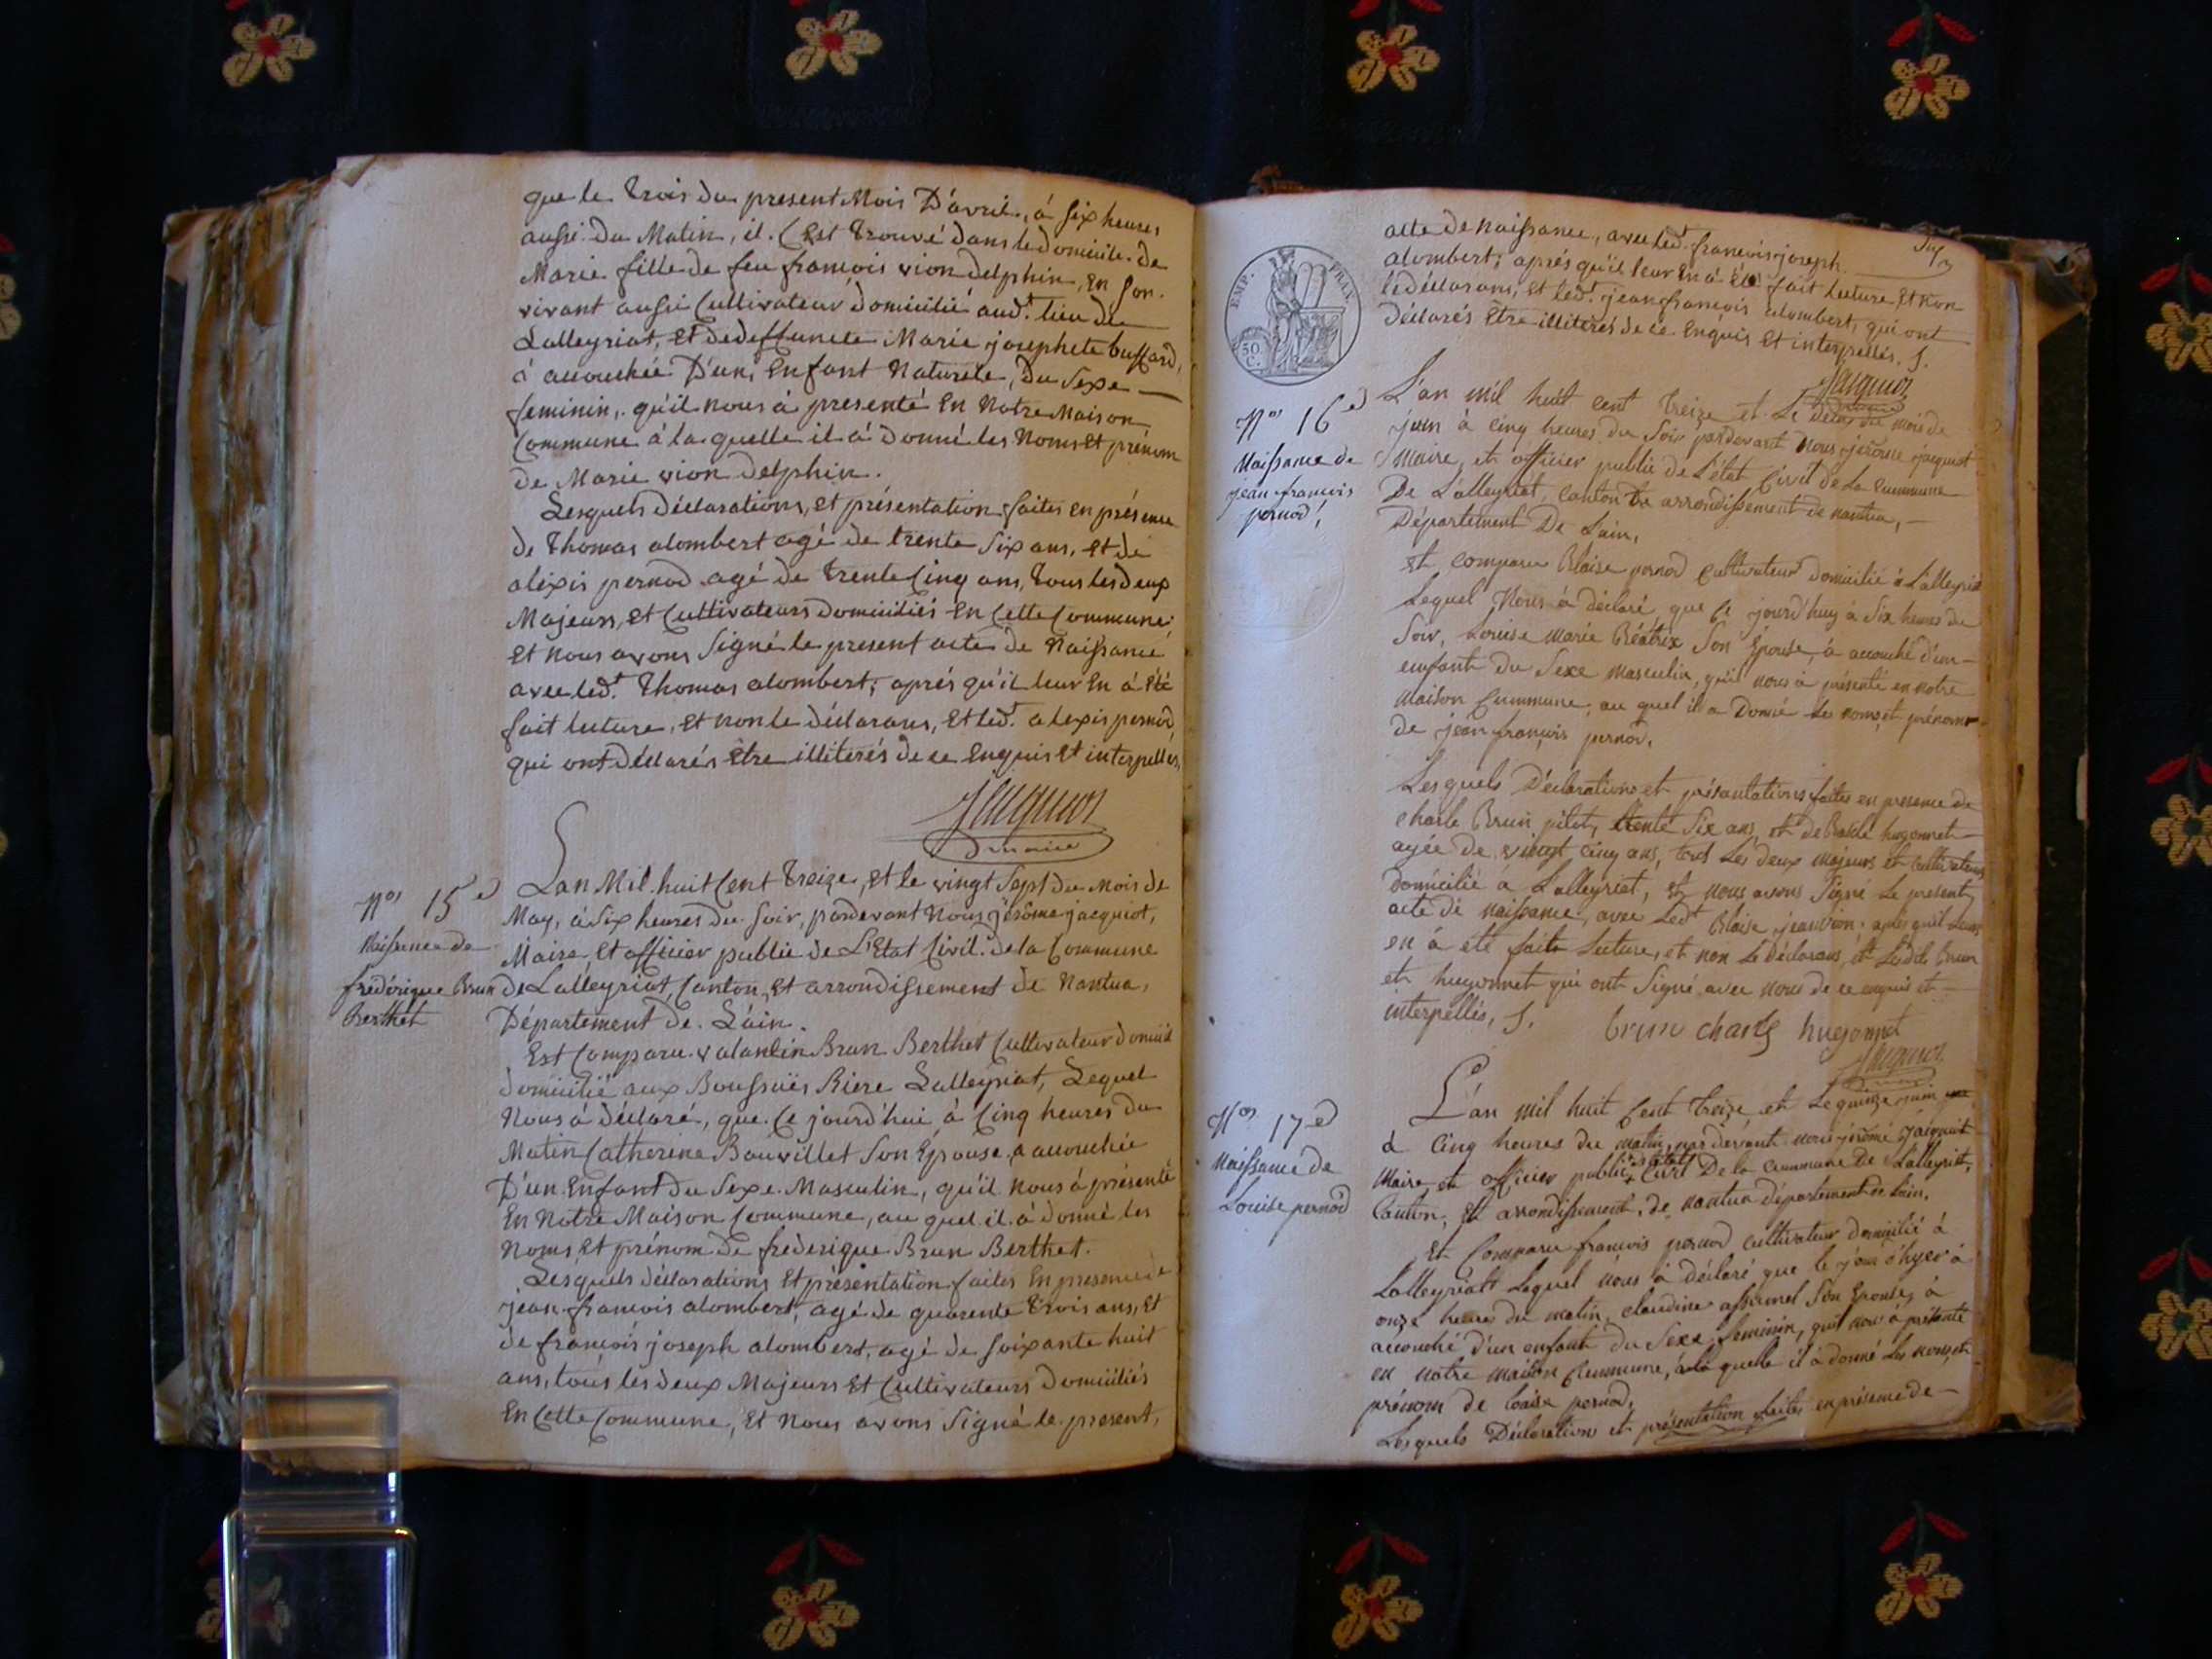 que le trois du present Mois D'avril, à six heures
aussi du Matin, il C'est trouvé dans le domicile de
Marie fille de feu françois vion delphin, En son
vivant aussi Cultivateur domicilié aud.t lieu de
Lalleyriat, Et de deffunete Marie josephete buffard,
à accouchée D'un, Enfant Naturele, Du Sexe
feminin, qu'il nous à presenté En Notre Maison
Commune à la quelle il à donné les Noms Et prénom
de Marie vion delphin.
Lesquels déclarations, et présentation faites en présence
de Thomas alombert agé de trente six ans, et de
aléxis pernod agé de trente Cinq ans, tous les deux
Majeurs, Et Cultivateurs domiciliés En Cette Commune;
Et nous avons signé le present acte de Naissance
avec led.t Thomas alombert; aprés qu'il leur En à été
fait lecture, Et non le déclarans, Et led.t alexis pernod
qui ont déclarés Etre illiterés de ce Enquis Et interpellés,
Jacquiot
maire
N.o 15 e
Naissance de
fréderique Brun
Berthet
L'an Mil huit Cent treize, Et le vingt Sept du Mois de
May, à Six heures du soir, pardevant Nous jérôme jacquiot,
Maire, Et officier public de L'Etat Civil de la Commune
de Lalleyriat, Canton, Et arrondissement de Nantua,
Département de L'ain.
Est Comparu valantin Brun Berthet Cultivateur
domicilié aux Boussuës Riere Lalleyriat, Lequel
Nous à déclaré, que Ce jourd'hui à Cinq heures du
Matin Catherine Bouvillet Son Épouse à accouchée
D'un Enfant du Sexe Masculin, qu'il nous à présenté
En Notre Maison Commune, au quel il à donné les
Noms Et prénom de fréderique Brun Berthet.
Lesquels déclarations Et présentation faites En presence de
jean françois alombert, agé de quarente trois ans, Et
de françois joseph alombert, agé de soixante huit
ans, tous les deux Majeurs Et Cultivateurs domiciliés
En Cette Commune, Et Nous avons Signé le present,
EMP. FRAN.
50 C.
acte de Naissance, avec led.t francois joseph
alombert; aprés qu'il leur En à été fait lecture Et non
le déclarans, Et led.t jean françois alombert, qui ont
déclarés Etre illiterés de ce Enquis Et interpellés.
Jacquiot
N.o 16 e
Naissance de
jean francois
pernod
L'an mil huit cent treize et le du mois de
juin à cinq heures du Soir pardevant Nous jérôme jacquiot
Maire, et officier public de L'état Civil de La Commune
De L'alleyriat, canton arrondissement de nantua,
Département De Lain,
Et comparu Blaise pernod cultivateur domicilié à L'alleyriat
Lequel Nous à déclaré que Ce jourd'huy à Six heures de
Soir, Louise Marie Béatrix Son Épouse, à accouché d'un
enfant du Sexe masculin, qu'il nous à présenté en notre
Maison Commune, au quel il a Donné Les noms et prénoms
de jean françois pernod.
Lesquels Déclarations et présantations faites en presence de
charle Brun pilet, trente Six ans, et de hugonnet
agée de vingt cinq ans, tous Les deux majeurs et cultivateurs
domicilié à Lalleyriat, et nous avons Signé Le present
acte de naissance, avec Led.t Blaise aprés qu'il Leurs
en à eté faite Lecture, et non Le Déclarans, et Brun
et hugonnet qui ont Signé avec nous de ce enquis et
interpellés,
brun charle hugonnet
Jacquiot
maire
N.o 17 e
Naissance de
Louise pernod
L'an mil huit Cent treize et Le quinze juin
à Cinq heures du matin, par devant nous jérôme jacquiot
Maire et officier public de l'état Civil De la Commune De L'alleyriat,
Canton, Et arrondissement de nantua Département de Lain.
Et Comparu françois pernod cultivateur domicilié à
Lalleyriat Lequel Nous à Déclaré que le jour d'hyer à
onze heure du matin, claudine Son Epouse, à
accouché d'un enfant du Sexe feminin, qu'il nous à présenté
en notre maison Commune, à la quelle il à donné Les noms et
prénom de Loaise pernod,
Lesquels Déclarations et présentation faites en présence de